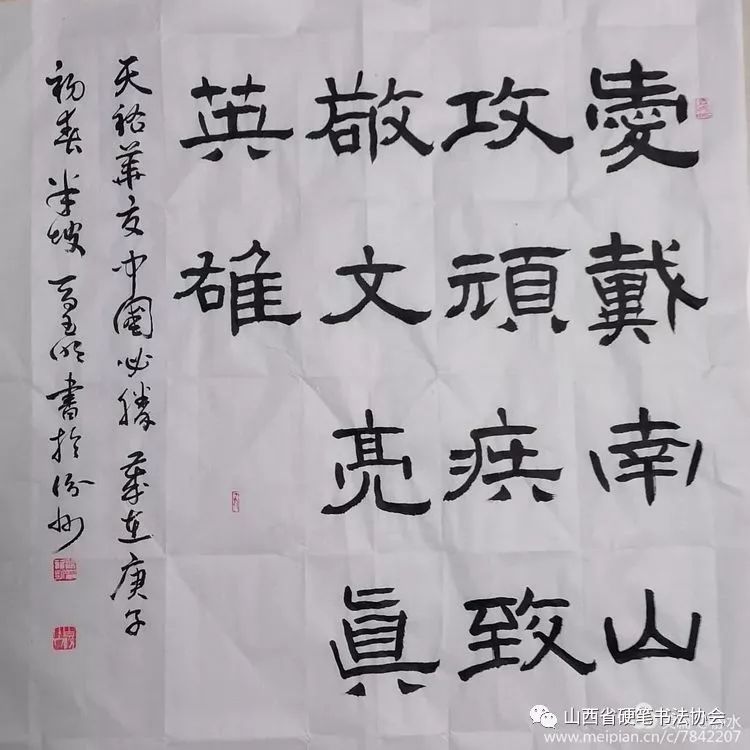 愛戴南山
攻頑疾致
敬文亮眞
英雄
天祐華夏中國必勝 歲在庚子
初春 半坡 書於汾州
山西省硬笔书法协会
www.meipian.cn/c/7842207